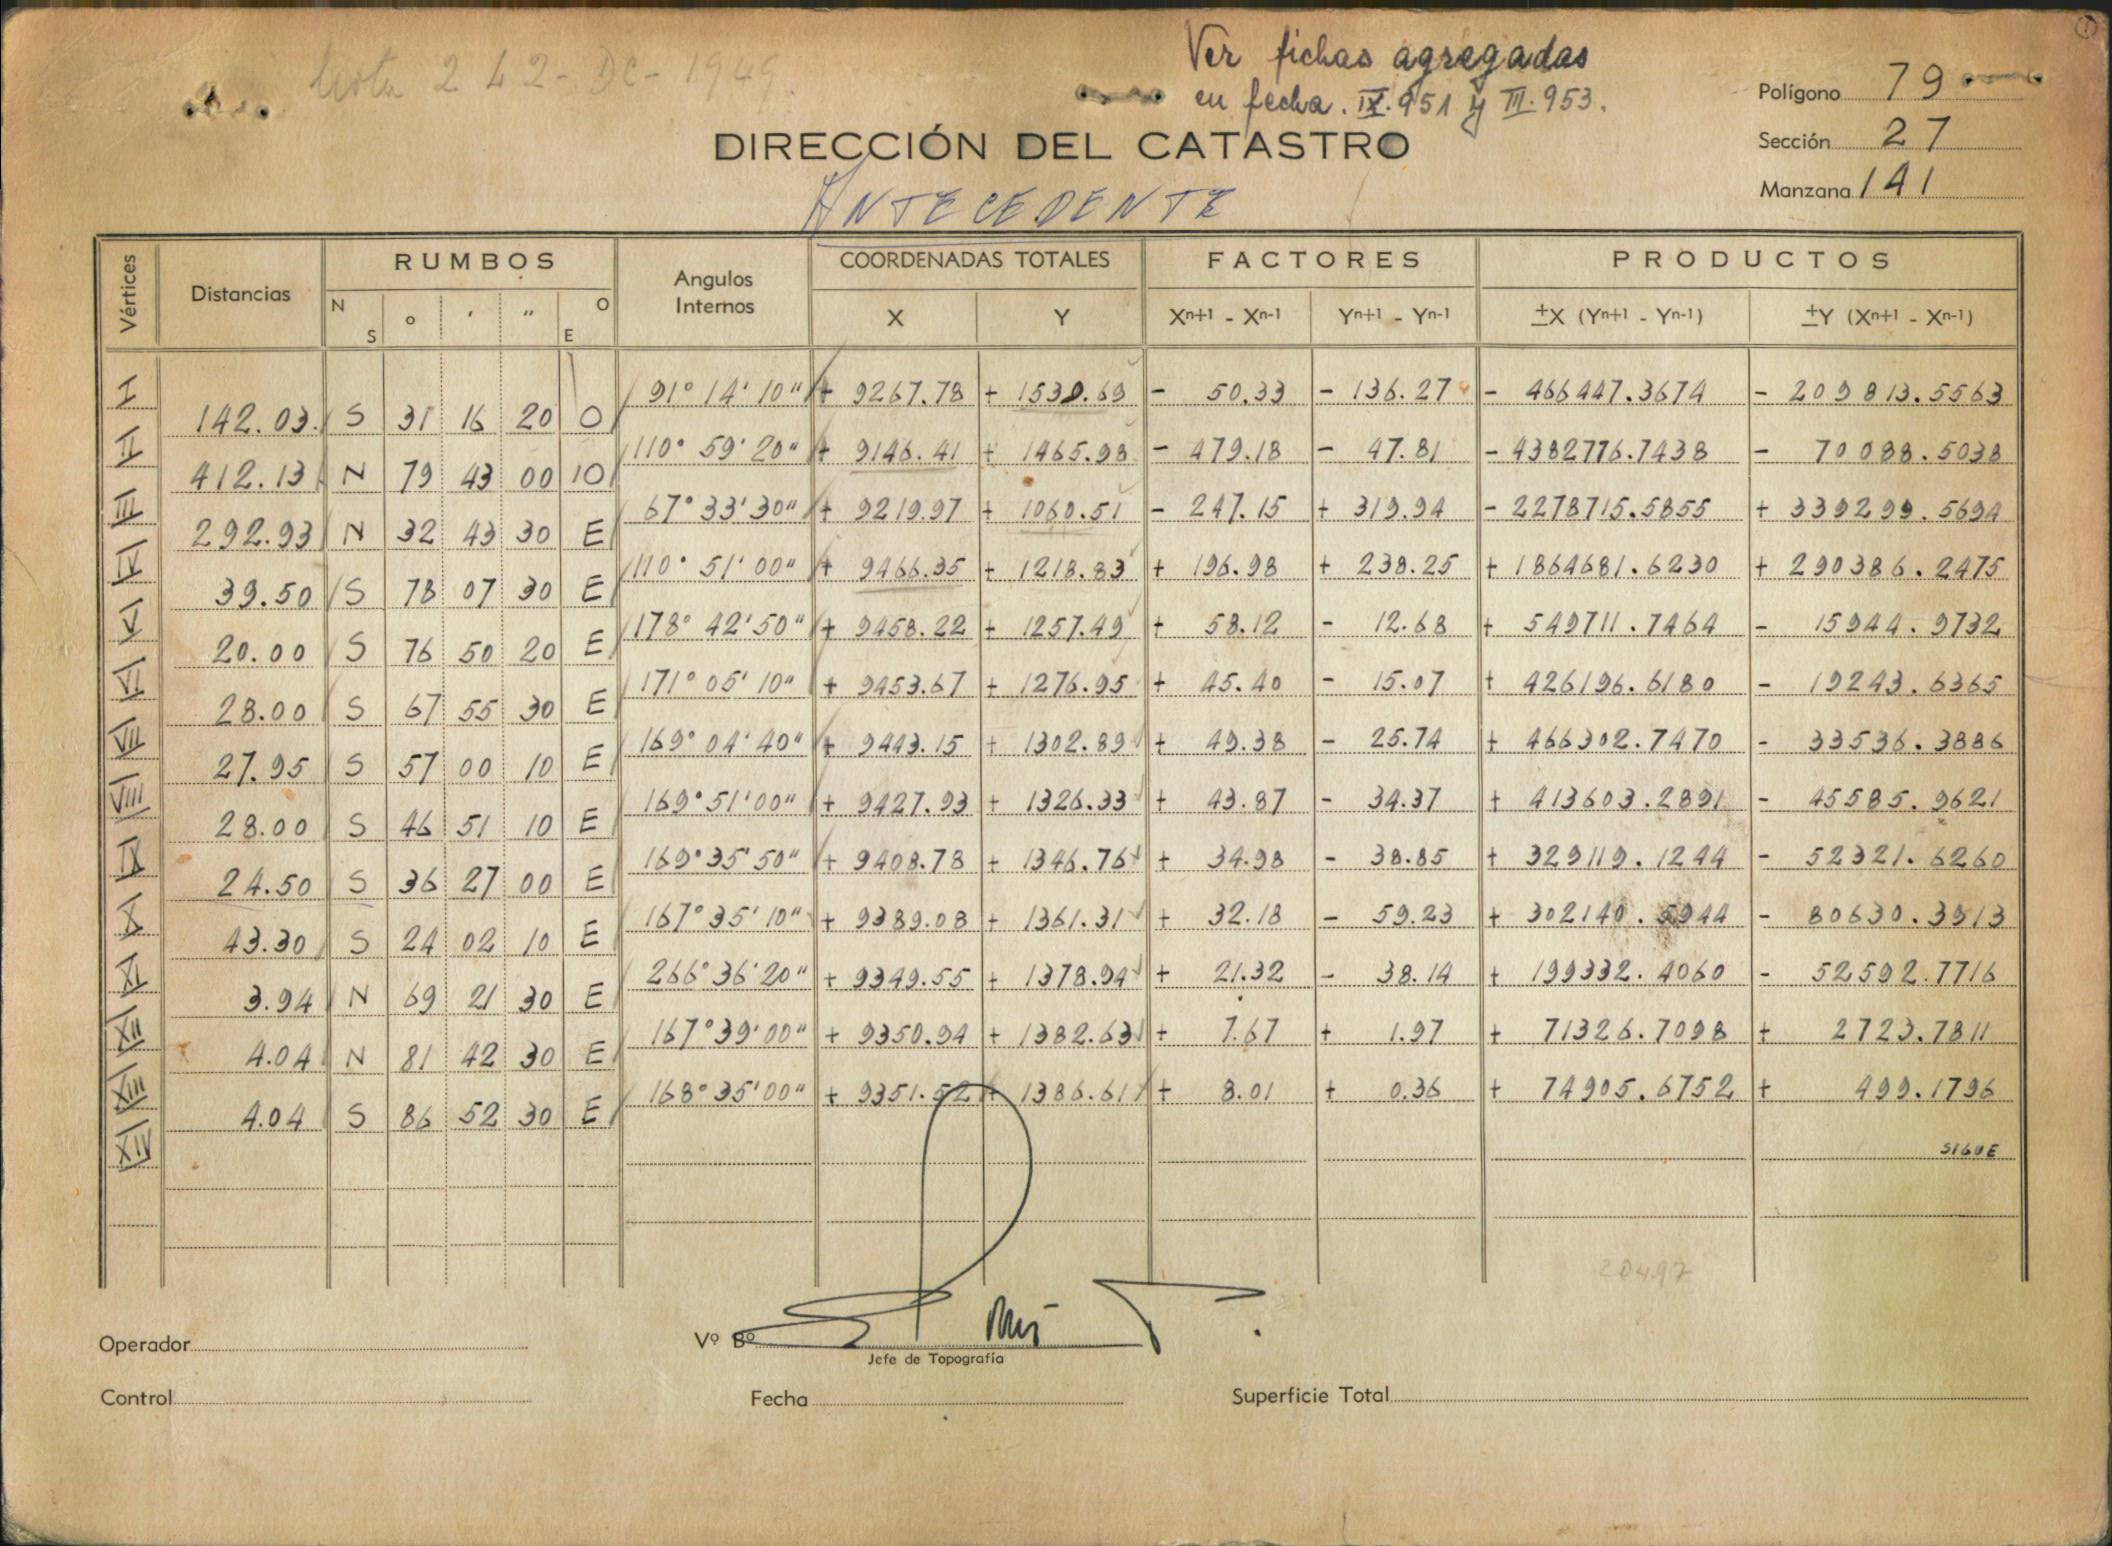 Nota 242-DC-1949
Ver fichas agregadas
en fecha. IX.951 y III.953.
Polígono 79
Sección 27
Manzana 141
DIRECCIÓN DEL CATASTRO
ANTECEDENTE
Vértices Distancias RUMBOS Angulos Internos COORDENADAS TOTALES FACTORES PRODUCTOS
N S ° ' " O E X Y Xn+1 - Xn-1 Yn+1 - Yn-1 ±X (Yn+1 - Yn-1) ±Y (Xn+1 - Xn-1)
I 91° 14' 10" + 9267.78 + 1539.69 - 50.33 - 136.27 - 466447.3674 - 209813.5563
142.03 S 31 16 20 O
II 110° 59' 20" + 9146.41 + 1465.98 - 479.18 - 47.81 - 4382776.7438 - 70088.5038
412.13 N 79 43 00 O
III 67° 33' 30" + 9219.97 + 1060.51 - 247.15 + 319.94 - 2278715.5855 + 339299.5694
292.93 N 32 43 30 E
IV 110° 51' 00" + 9466.35 + 1218.83 + 196.98 + 238.25 + 1864681.6230 + 290386.2475
39.50 S 78 07 30 E
V 178° 42' 50" + 9458.22 + 1257.49 + 58.12 - 12.68 + 549711.7464 - 15944.9732
20.00 S 76 50 20 E
VI 171° 05' 10" + 9453.67 + 1276.95 + 45.40 - 15.07 + 429196.6180 - 19243.6365
28.00 S 67 55 30 E
VII 169° 04' 40" + 9443.15 + 1302.89 + 49.38 - 25.74 + 466302.7470 - 33536.3886
27.95 S 57 00 10 E
VIII 169° 51' 00" + 9427.93 + 1326.33 + 43.87 - 34.37 + 413603.2891 - 45585.9621
28.00 S 46 51 10 E
IX 169° 35' 50" + 9408.78 + 1346.76 + 34.98 - 38.85 + 329119.1244 - 52321.6260
24.50 S 36 27 00 E
X 167° 35' 10" + 9389.08 + 1361.31 + 32.18 - 59.23 + 302140.5944 - 80630.3913
43.30 S 24 02 10 E
XI 266° 36' 20" + 9349.55 + 1378.94 + 21.32 - 38.14 + 199332.4060 - 52592.7716
3.94 N 69 21 30 E
XII 167° 39' 00" + 9350.94 + 1382.63 + 7.67 + 1.97 + 71721.7098 + 2723.7811
4.04 N 81 42 30 E
XIII 168° 35' 00" + 9351.52 + 1386.61 + 8.01 + 0.36 + 74905.6752 + 499.1796
4.04 S 86 52 30 E
XIV SIGUE
20497
Operador Vº Bº
Jefe de Topografía
Control Fecha Superficie Total